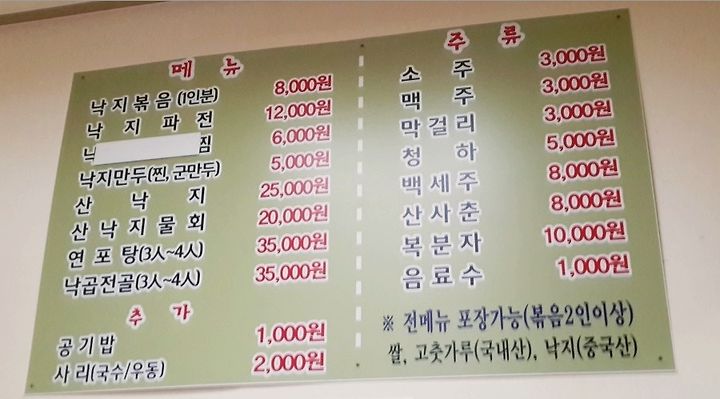 메 뉴
낙지볶음 (1인분) 8,000원
낙 지 파 전 12,000원
찜 6,000원
낙지만두(찐, 군만두) 5,000원
산 낙 지 25,000원
산 낙 지 물 회 20,000원
연 포 탕(3人~4人) 35,000원
낙곱전골(3人~4人) 35,000원
추 가
공 기 밥 1,000원
사 리(국수/우동) 2,000원
주 류
소 주 3,000원
맥 주 3,000원
막 걸 리 3,000원
청 하 5,000원
백 세 주 8,000원
산 사 춘 8,000원
복 분 자 10,000원
음 료 수 1,000원
※ 전메뉴 포장가능(볶음2인이상)
쌀, 고춧가루(국내산), 낙지(중국산)